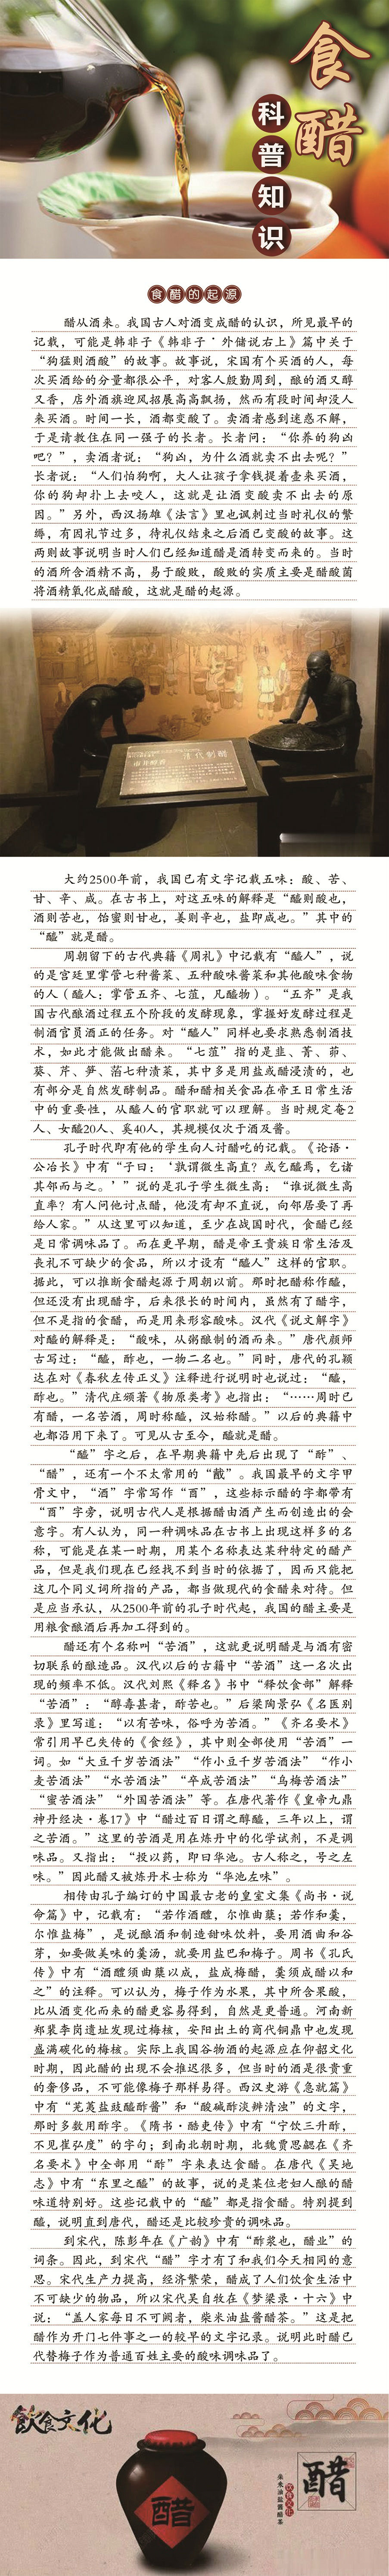 食醋
科普知识
食醋的起源
醋从酒来。我国古人对酒变成醋的认识，所见最早的
记载，可能是韩非子《韩非子·外储说右上》篇中关于
“狗猛则酒酸”的故事。故事说，宋国有个买酒的人，每
次买酒给的分量都很公平，对客人殷勤周到，酿的酒又醇
又香，店外酒旗迎风招展高高飘扬，然而有段时间却没人
来买酒。时间一长，酒都变酸了。卖酒者感到迷惑不解，
于是请教住在同一强子的长者。长者问：“你养的狗凶
吧？”，卖酒者说：“狗凶，为什么酒就卖不出去呢？”
长者说：“人们怕狗啊，大人让孩子拿钱提着壶来买酒，
你的狗却扑上去咬人，这就是让酒变酸卖不出去的原
因。”另外，西汉扬雄《法言》里也讽刺过当时礼仪的繁
缛，有因礼节过多，待礼仪结束之后酒已变酸的故事。这
两则故事说明当时人们已经知道醋是酒转变而来的。当时
的酒所含酒精不高，易于酸败，酸败的实质主要是醋酸菌
将酒精氧化成醋酸，这就是醋的起源。
清代制醋
大约2500年前，我国已有文字记载五味：酸、苦、
甘、辛、咸。在古书上，对这五味的解释是“醯则酸也，
酒则苦也，饴蜜则甘也，姜则辛也，盐即咸也。”其中的
“醯”就是醋。
周朝留下的古代典籍《周礼》中记载有“醯人”，说
的是宫廷里掌管七种酱菜、五种酸味酱菜和其他酸味食物
的人（醯人：掌管五齐、七菹，凡醯物）。“五齐”是我
国古代酿酒过程五个阶段的发酵现象，掌握好发酵过程是
制酒官员酒正的任务。对“醯人”同样也要求熟悉制酒技
术，如此才能做出醋来。“七菹”指的是韭、菁、茆、
葵、芹、笋、菭七种渍菜，其中多是用盐或醋浸渍的，也
有部分是自然发酵制品。醋和醋相关食品在帝王日常生活
中的重要性，从醯人的官职就可以理解。当时规定奄2
人、女醯20人、奚40人，其规模仅次于酒及酱。
孔子时代即有他的学生向人讨醋吃的记载。《论语·
公冶长》中有“子曰：‘孰谓微生高直？或乞醯焉，乞诸
其邻而与之。’”说的是孔子学生微生高：“谁说微生高
直率？有人问他讨点醋，他没有却不直说，向邻居要了再
给人家。”从这里可以知道，至少在战国时代，食醋已经
是日常调味品了。而在更早期，醋是帝王贵族日常生活及
丧礼不可缺少的食品，所以才设有“醯人”这样的官职。
据此，可以推断食醋起源于周朝以前。那时把醋称作醯，
但还没有出现醋字，后来很长的时间内，虽然有了醋字，
但不是指的食醋，而是用来形容酸味。汉代《说文解字》
对醯的解释是：“酸味，从粥酿制的酒而来。”唐代颜师
古写过：“醯，酢也，一物二名也。”同时，唐代的孔颖
达在对《春秋左传正义》注释进行说明时也说过：“醯，
酢也。”清代庄颁著《物原类考》也指出：“……周时已
有醋，一名苦酒，周时称醯，汉始称醋。”以后的典籍中
也都沿用下来了。可见从古至今，醯就是醋。
“醯”字之后，在早期典籍中先后出现了“酢”、
“醋”，还有一个不太常用的“酨”。我国最早的文字甲
骨文中，“酒”字常写作“酉”，这些标示醋的字都带有
“酉”字旁，说明古代人是根据醋由酒产生而创造出的会
意字。有人认为，同一种调味品在古书上出现这样多的名
称，可能是在某一时期，用某个名称表达某种特定的醋产
品，但是我们现在已经找不到当时的依据了，因而只能把
这几个同义词所指的产品，都当做现代的食醋来对待。但
是应当承认，从2500年前的孔子时代起，我国的醋主要是
用粮食酿酒后再加工得到的。
醋还有个名称叫“苦酒”，这就更说明醋是与酒有密
切联系的酿造品。汉代以后的古籍中“苦酒”这一名次出
现的频率不低。汉代刘熙《释名》书中“释饮食部”解释
“苦酒”：“醇毒甚者，酢苦也。”后梁陶景弘《名医别
录》里写道：“以有苦味，俗呼为苦酒。”《齐名要术》
常引用早已失传的《食经》，其中则全部使用“苦酒”一
词。如“大豆千岁苦酒法”“作小豆千岁苦酒法”“作小
麦苦酒法”“水苦酒法”“卒成苦酒法”“乌梅苦酒法”
“蜜苦酒法”“外国苦酒法”等。在唐代著作《皇帝九鼎
神丹经决·卷17》中“醋过百日谓之醇醯，三年以上，谓
之苦酒。”这里的苦酒是用在炼丹中的化学试剂，不是调
味品。又指出：“投以药，即曰华池。古人称之，号之左
味。”因此醋又被炼丹术士称为“华池左味”。
相传由孔子编订的中国最古老的皇室文集《尚书·说
命篇》中，记载有：“若作酒醴，尔惟曲糵；若作和羹，
尔惟盐梅”，是说酿酒和制造甜味饮料，要用酒曲和谷
芽，如要做美味的羹汤，就要用盐巴和梅子。周书《孔氏
传》中有“酒醴须曲糵以成，盐咸梅醋，羹须咸醋以和
之”的注释。可以认为，梅子作为水果，其中所含果酸，
比从酒变化而来的醋更容易得到，自然是更普通。河南新
郑裴李岗遗址发现过梅核，安阳出土的商代铜鼎中也发现
盛满碳化的梅核。实际上我国谷物酒的起源应在仰韶文化
时期，因此醋的出现不会推迟很多，但当时的酒是很贵重
的奢侈品，不可能像梅子那样易得。西汉史游《急就篇》
中有“芜荑盐豉醯酢酱”和“酸碱酢淡辨清浊”的文字，
那时多数用酢字。《隋书·酷吏传》中有“宁饮三升酢，
不见崔弘度”的字句；到南北朝时期，北魏贾思勰在《齐
名要术》中全部用“酢”字来表达食醋。在唐代《吴地
志》中有“东里之醯”的故事，说的是某位老妇人酿的醋
味道特别好。这些记载中的“醯”都是指食醋。特别提到
醯，说明直到唐代，醋还是比较珍贵的调味品。
到宋代，陈彭年在《广韵》中有“酢浆也，醋业”的
词条。因此，到宋代“醋”字才有了和我们今天相同的意
思。宋代生产力提高，经济繁荣，醋成了人们饮食生活中
不可缺少的物品，所以宋代吴自牧在《梦梁录·十六》中
说：“盖人家每日不可阙者，柴米油盐酱醋茶。”这是把
醋作为开门七件事之一的较早的文字记录。说明此时醋已
代替梅子作为普通百姓主要的酸味调味品了。
飲食文化
醋
柴米油盐酱醋茶
饮食文化
醋